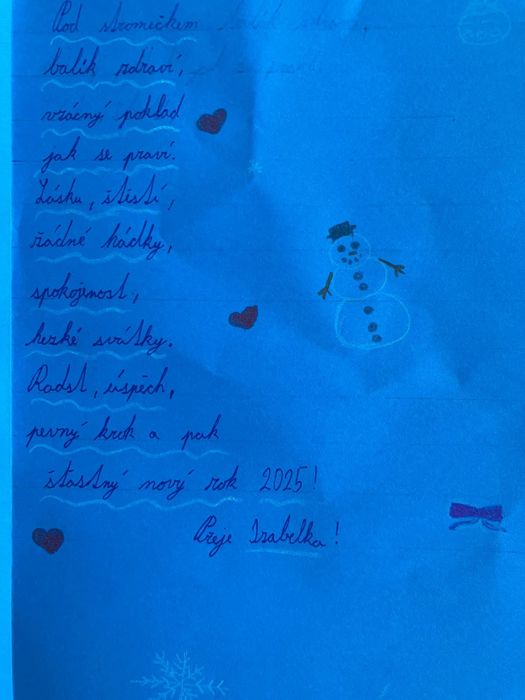 Pod stromečkem
balík zdraví,
vzácný poklad
jak se praví.
Lásku, štěstí,
žádné hádky,
spokojenost,
hezké svátky.
Radst, úspěch,
pevný krok a pak
šťastný nový rok 2025!
Přeje Izabelka!